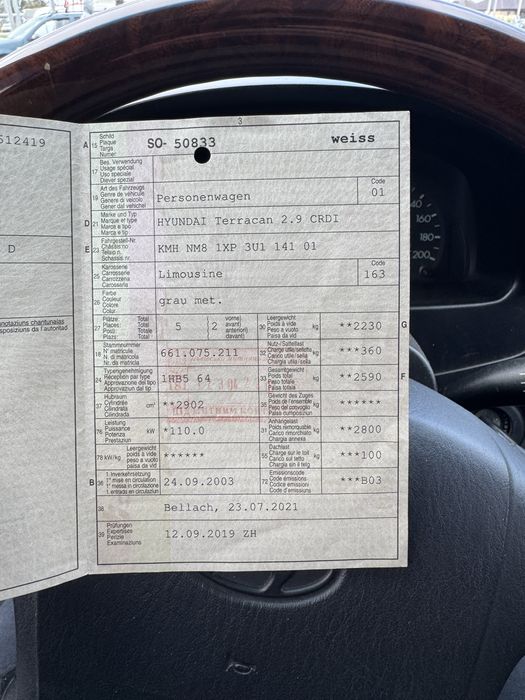 512419
D
nnotaziuns chantunalas
sposizions da l'autoritad
3
A 15 Schild
Plaque
Targa
Numer
SO- 50833 weiss
17 Bes. Verwendung
Usage spécial
Uso speciale
Diever spezial
19 Art des Fahrzeugs
Genre de véhicule
Genere di veicolo
Gener dal vehichel
Personenwagen
Code
01
D 21 Marke und Typ
Marque et type
Marca e tipo
Marca e tip
HYUNDAI Terracan 2.9 CRDI
E 23 Fahrgestell-Nr.
Châssis no
Telaio n.
Schassis nr.
KMH NM8 1XP 3U1 141 01
25 Karosserie
Carrosserie
Carrozzeria
Carossaria
Limousine
Code
163
26 Farbe
Couleur
Colore
Calur
grau met.
27 Plätze: Total
Places: Total
Posti: Totale
Plazs: Total
5
2
vorne)
avant)
anteriori)
davant)
30 Leergewicht
Poids à vide
Peso a vuoto
Paisa da vid
kg
**2230
G
18 Stammnummer
N° matricule
N. di matricola
Nr. da matricla
661.075.211
32 Nutz-/Sattellast
Charge utile/sellette
Carico utile/sella
Chargia utila/sella
kg
***360
24 Typengenehmigung
Réception par type
Approvazione del tipo
Approvaziun dal tip
1HB5 64
33 Gesamtgewicht
Poids total
Peso totale
Paisa totala
kg
**2590
F
37 Hubraum
Cylindrée
Cilindrata
Cilindrada
cm³
**2902
35 Gewicht des Zuges
Poids de l'ensemble
Peso del convoglio
Paisa cumposiziun
kg
******
76 Leistung
Puissance
Potenza
Prestaziun
kW
*110.0
31 Anhängelast
Poids remorquable
Carico rimorchiato
Chargia annexa
kg
**2800
78 kW/kg
Leergewicht
poids à vide
peso a vuoto
paisa da vid
******
55 Dachlast
Charge sur le toit
Carico sul tetto
Chargia sin il tetg
kg
***100
B 36 1. Inverkehrsetzung
1re mise en circulation
1a messa in circolazione
1. entrada en circulaziun
24.09.2003
72 Emissionscode
Code émissions
Codice emissioni
Code d'emissiuns
***B03
38
Bellach, 23.07.2021
39 Prüfungen
Expertises
Perizie
Examinaziuns
12.09.2019 ZH
140
160
180
200